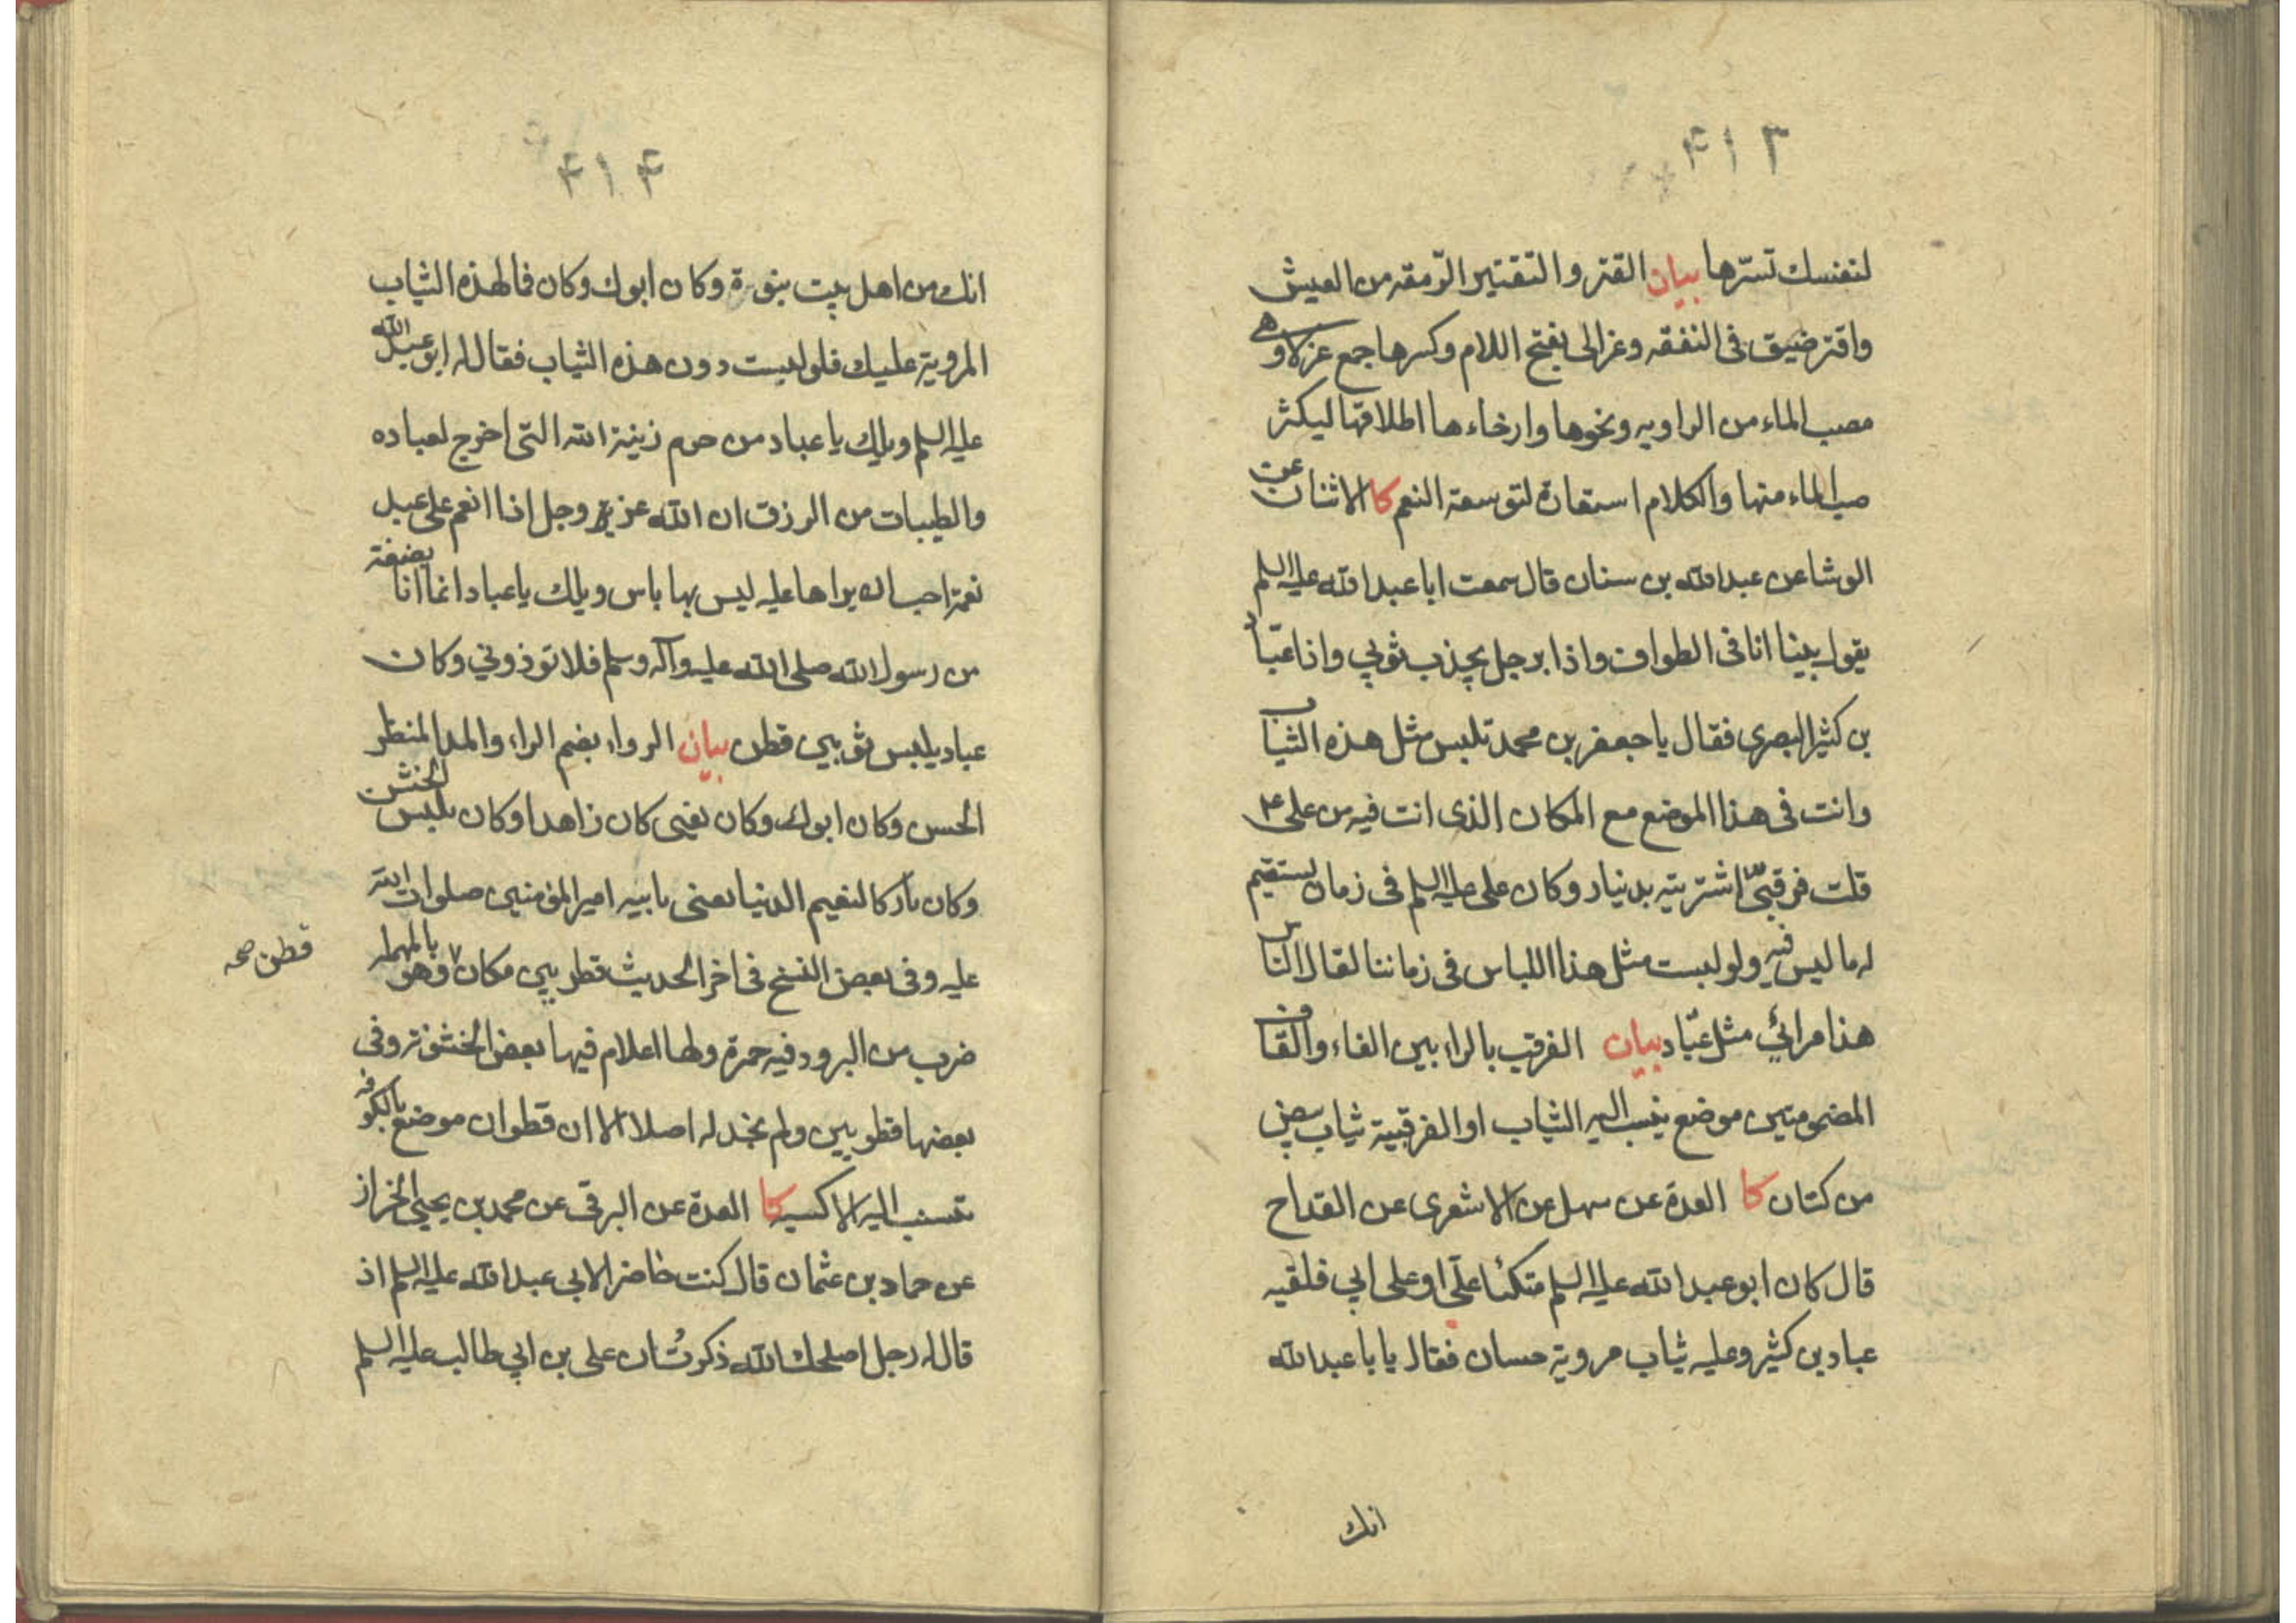 ۴۱۳
لنفسك تسترها بيان القتر والتقتير الرّمقة من العيش
واقتر ضيق فى النفقه وعزالى بفتح اللام وكسرها جمع عزلاء وهى
مصب الماء من الراويه ونحوها وارخاءها اطلاقها ليكثر
صب الماء منها والكلام استعارة لتوسعة النعم كا الاثنان عن
الوشا عن عبدالله بن سنان قال سمعت ابا عبدالله عليه السلم
يقول بينا انا فى الطواف واذا برجل يجذب ثوبي واذا عبّاد
بن كثير البصرى فقال يا جعفر بن محمد تلبس مثل هذه الثياب
وانت فى هذا الموضع مع المكان الذى انت فيه من على ع
قلت فرقبىّ اشتريته بدينار وكان على عليه السلم فى زمان يستقيم
له ما ليس فيه ولو لبست مثل هذا اللباس فى زماننا لقال الناس
هذا مرائي مثل عبّاد بيان الفرقب بالراء بين الفاء والقاف
المضمومتين موضع ينسب اليه الثياب او الفرقبية ثياب بيض
من كتان كا العدة عن سهل عن الاشعرى عن القداح
قال كان ابو عبدالله عليه السلم متكئا علّى او على ابي فلقيه
عباد بن كثير وعليه ثياب مروية حسان فقال يابا عبدالله
انك
۴۱۴
انك من اهل بيت نبوة وكان ابوك وكان فما لهذه الثياب
المروية عليك فلو لبست دون هذه الثياب فقال له ابو عبدالله
عليه السلم ويلك يا عباد من حرم زينة الله التى اخرج لعباده
والطيبات من الرزق ان الله عز وجل اذا انعم على عبد
نعمة احب ان يراها عليه ليس بها باس ويلك يا عباد انما انا بضعة
من رسول الله صلى الله عليه وآله وسلم فلا توذوني وكان
عباد يلبس ثوبين قطن بيان الرواء بضم الراء والمد المنظر
الحسن وكان ابوك وكان يعنى كان زاهدا وكان يلبس الخشن
وكان تاركا لنعيم الدنيا يعنى بابيه امير المؤمنين صلوات الله
عليه وفى بعض النسخ فى اخر الحديث قطريين مكان وهو بالمهملة
قطن صح
ضرب من البرود فيه حمرة ولها اعلام فيها بعض الخشونة وفى
بعضها قطويين ولم نجد له اصلا الا ان قطوان موضع بالكوفه
تنسب اليه الاكسيه كا العدة عن البرقى عن محمد بن يحيى الخزاز
عن حماد بن عثمان قال كنت حاضرا لابي عبدالله عليه السلم اذ
قال له رجل اصلحك الله ذكرت ان على بن ابي طالب عليه السلم